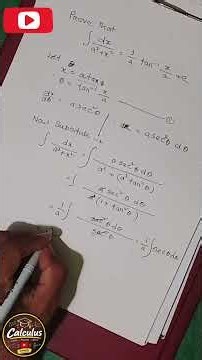 Prove that
∫ dx / a²+x² = 1/a tan⁻¹ x/a + c
Let
x = a tan θ
θ = tan⁻¹ x/a
dx/dθ = a sec²θ dx = a sec²θ dθ
Now Substitute
∫ dx / a²+x² = ∫ a sec²θ dθ / a²+(a² tan²θ)
= ∫ a sec²θ dθ / a²(1+tan²θ)
= 1/a ∫ sec²θ dθ / sec²θ
Calculus